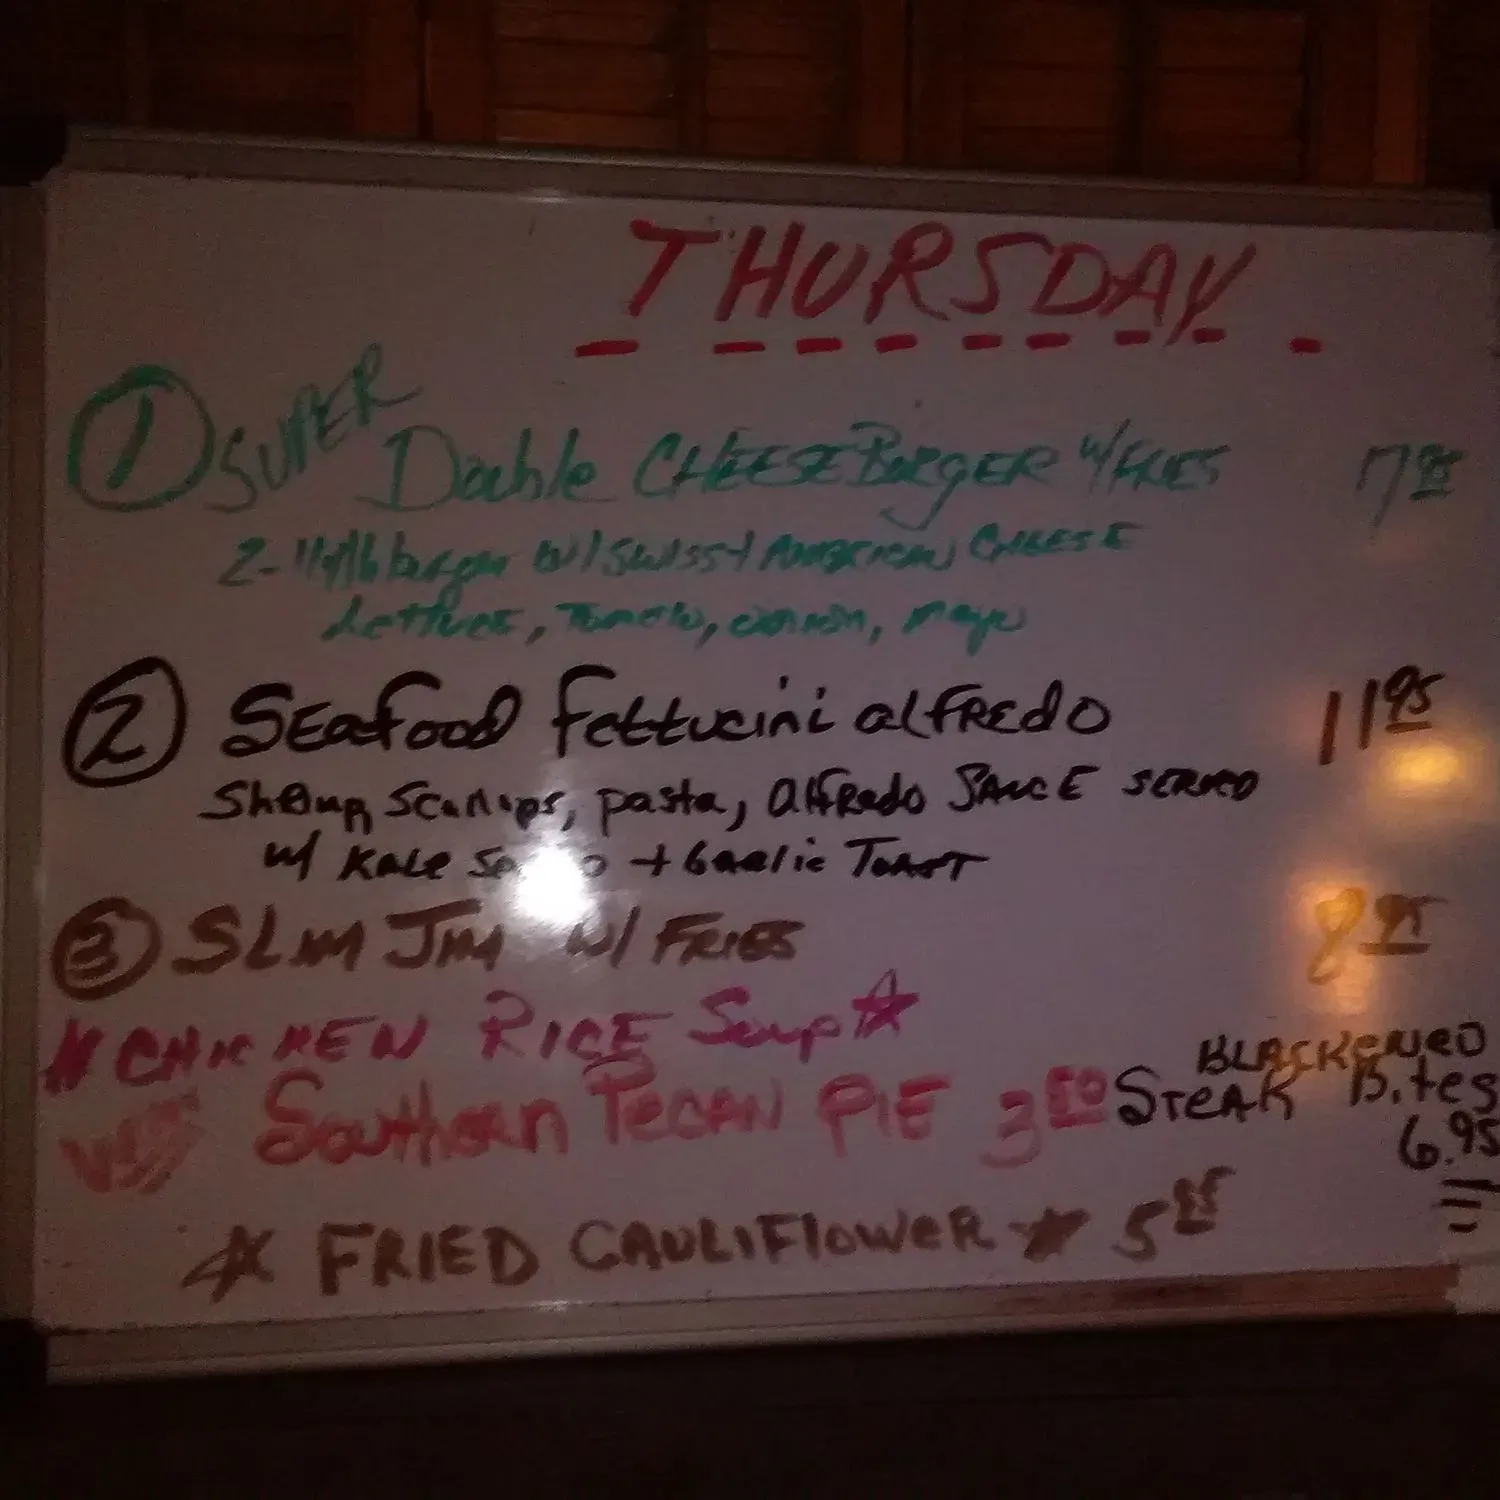 THURSDAY
1 SUPER Double CHEESEBURGER w/FRIES 7 95
2- 1/4 lb burger w/SWISS + AMERICAN CHEESE
Lettuce, Tomato, onion, mayo
2 SEafood fettucini alFREdO 11 95
Scallops, pasta, alfredo SAUCE SERVED
w/ KALE + Garlic TOAST
3 SLIM JIM w/ FRIES 8 95
CHICKEN RICE Soup
BLACKENED
Southern PECAN PIE 3 50 STEAK Bites
6.95
FRIED CAULIFlOWER 5 95